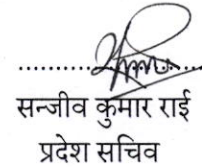 सन्जीव कुमार राई
प्रदेश सचिव